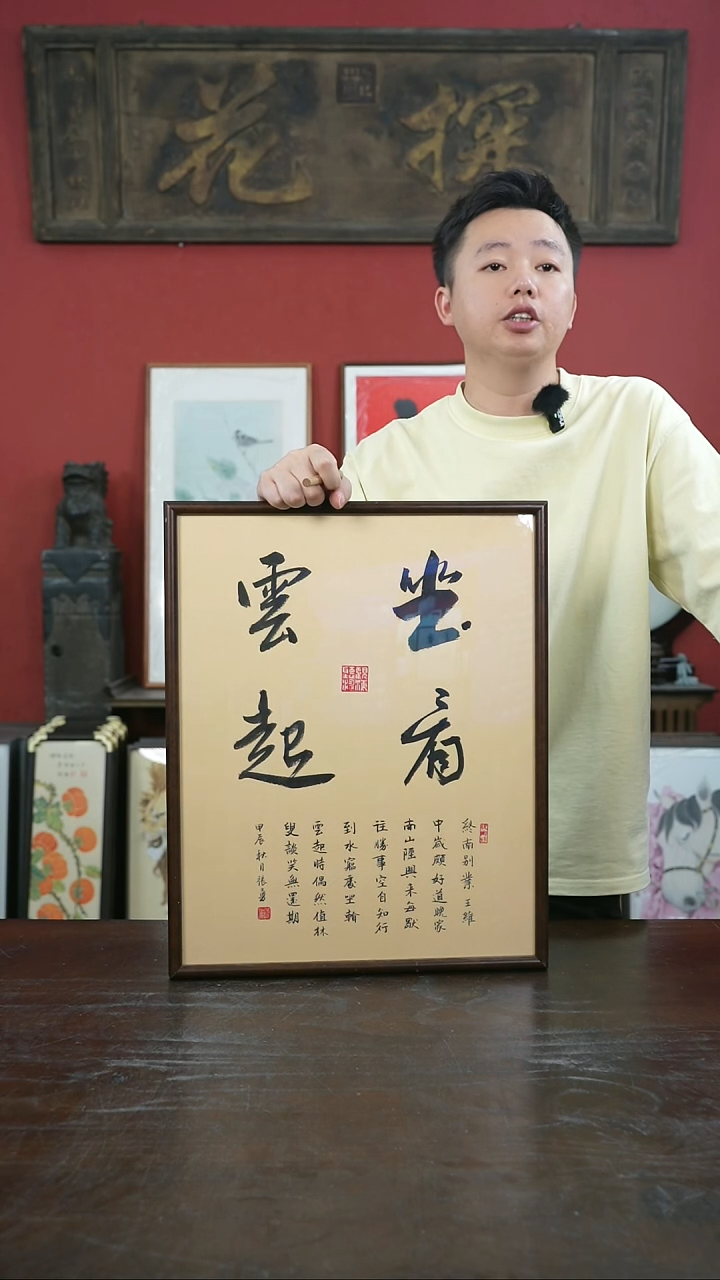 探花
坐看
雲起
終南別業 王維
中歲頗好道晚家
南山陲興來每獨
往勝事空自知行
到水窮處坐看
雲起時偶然值林
叟談笑無還期
甲辰秋月張勇